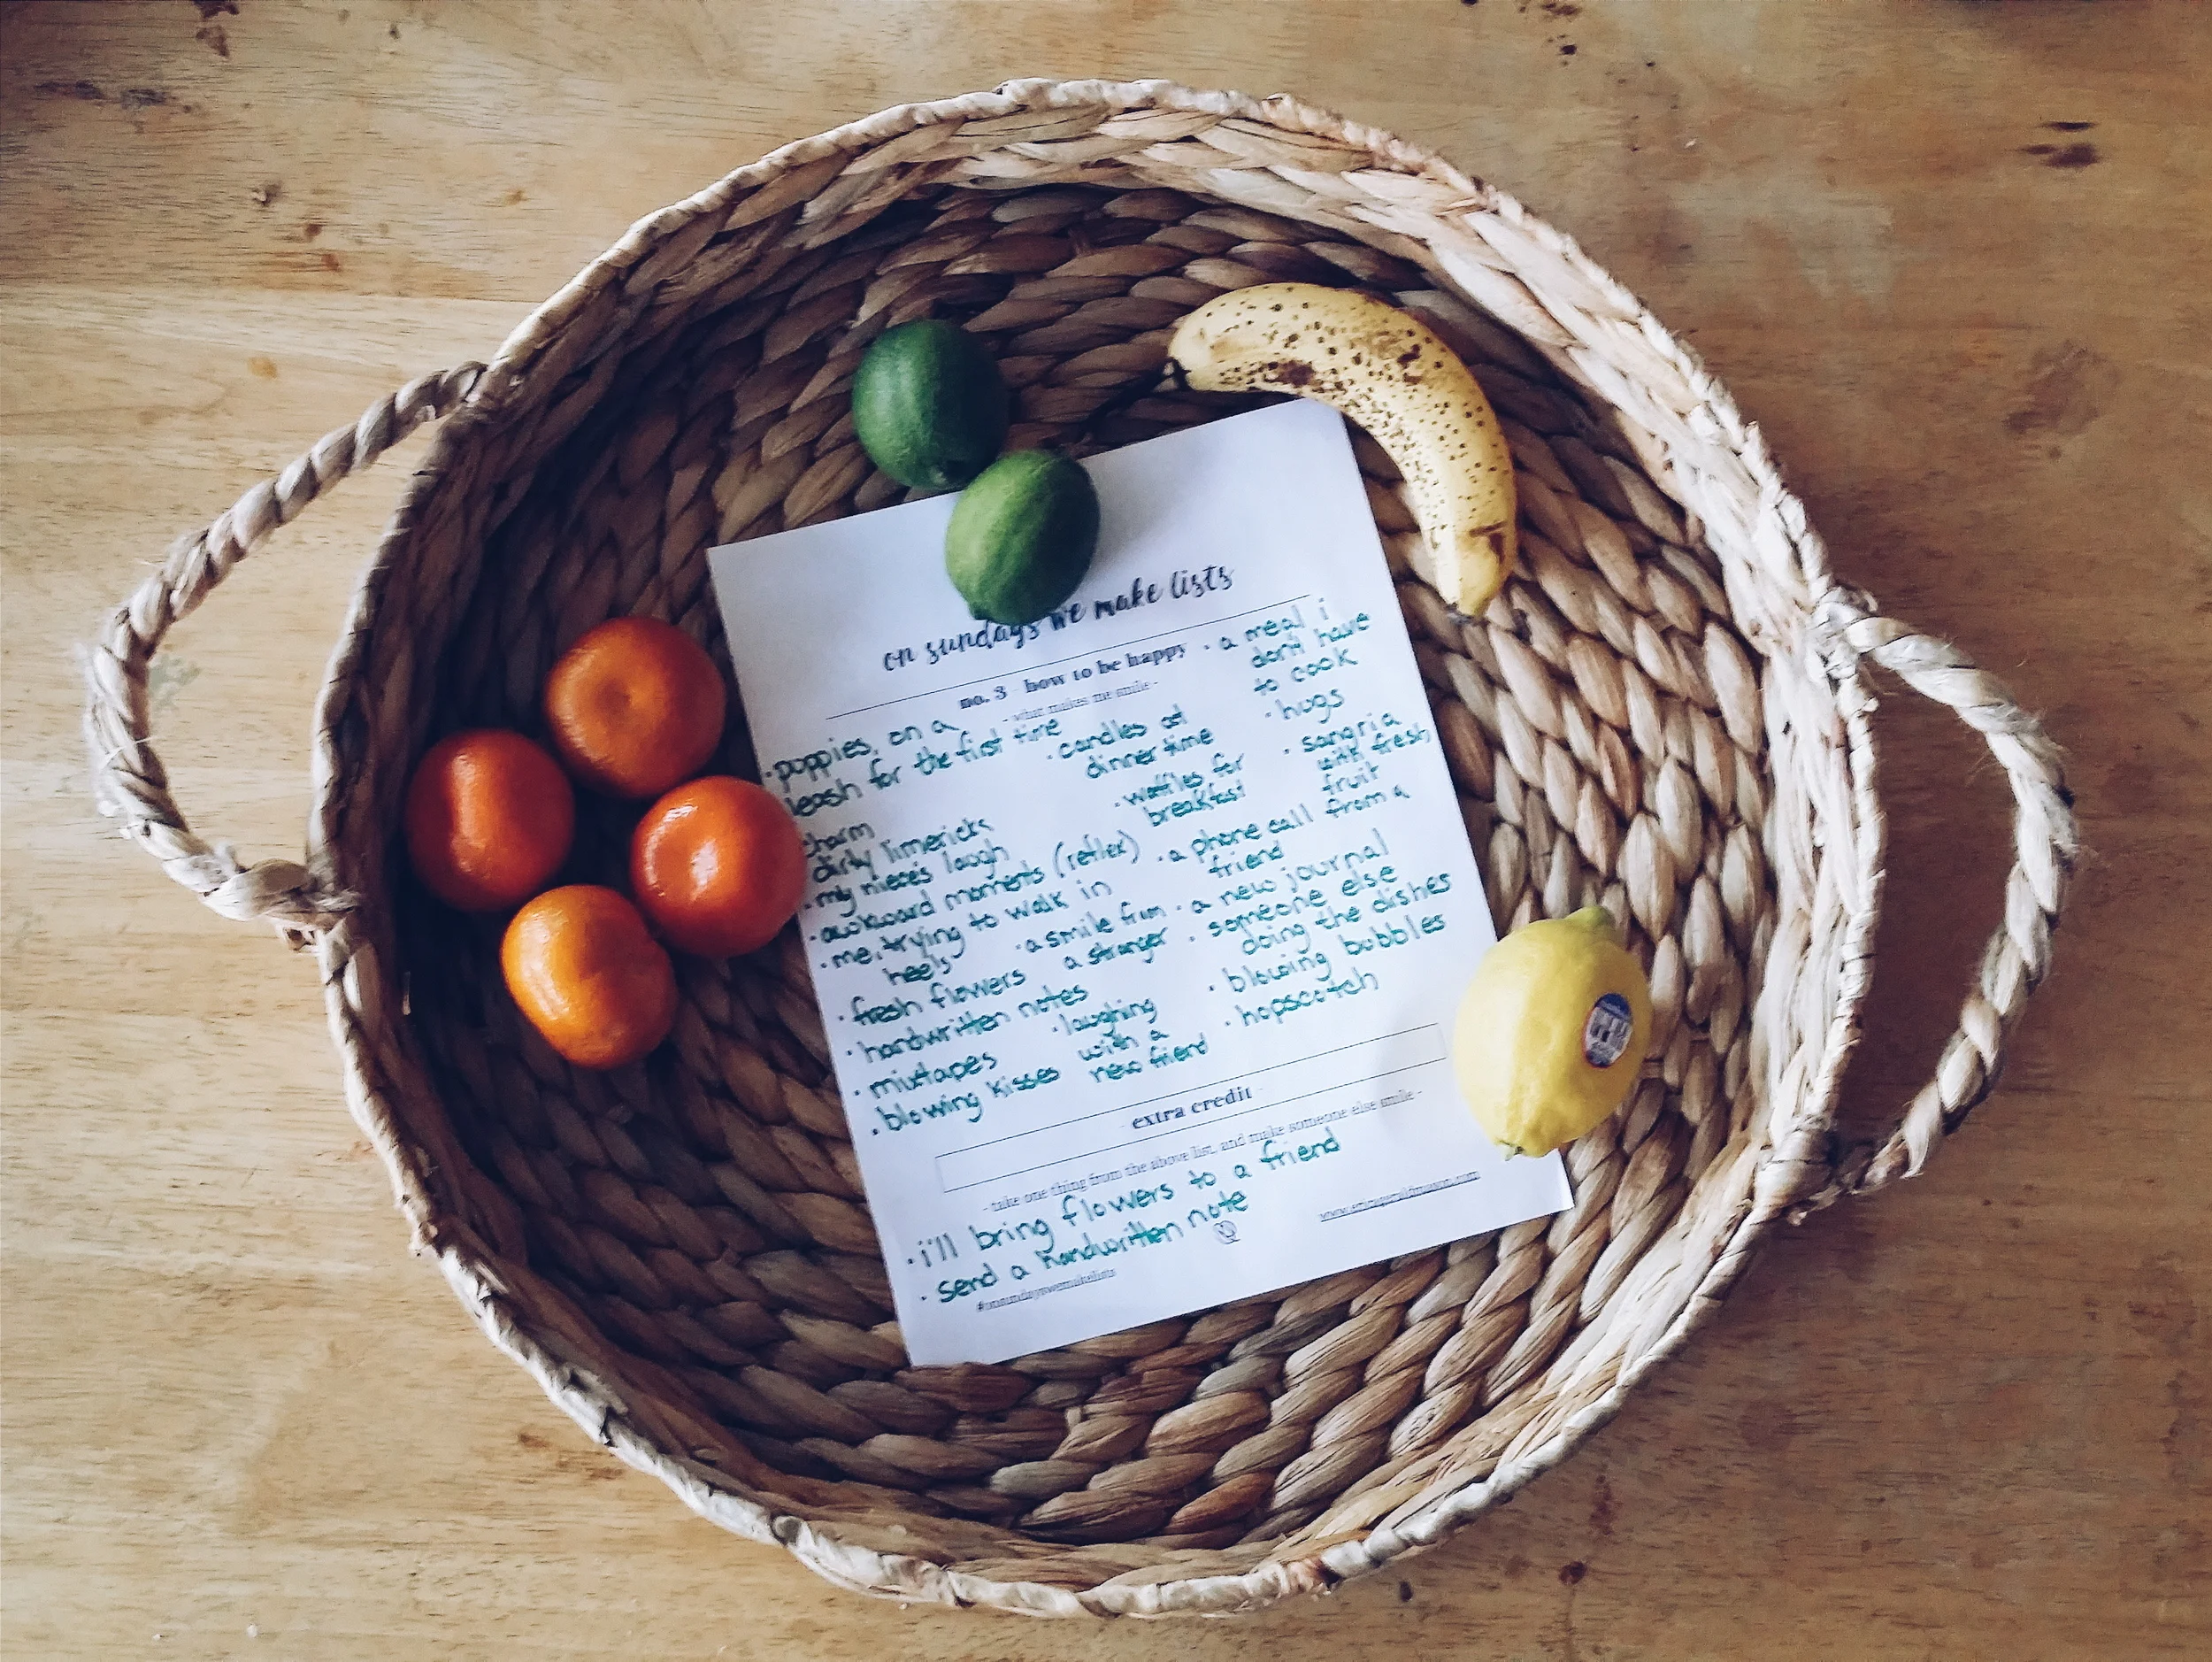 on sundays we make lists
no. 3 - how to be happy
- what makes me smile -
· poppies, on a
leash for the first time
charm
dirty limericks
· my nieces laugh
· awkward moments (reflex)
· me, trying to walk in
heels
· fresh flowers
· handwritten notes
· mixtapes
· blowing kisses
· candles at
dinner time
· waffles for
breakfast
· a smile from
a stranger
· laughing
with a
new friend
· a meal i
don't have
to cook
· hugs
· sangria
with fresh
fruit
· a phone call from a
friend
· a new journal
· someone else
doing the dishes
· blowing bubbles
· hopscotch
- extra credit -
- take one thing from the above list, and make someone else smile -
· i'll bring flowers to a friend
· send a handwritten note
#onsundayswemakelists